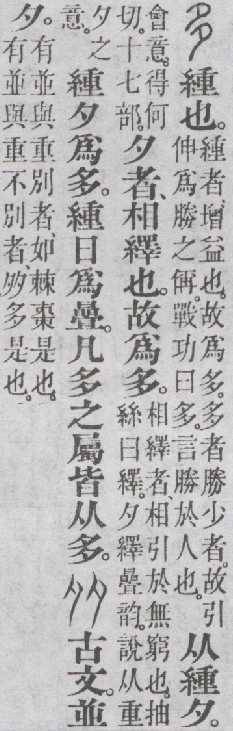 多緟也。緟者、增益也。故爲多。多者勝少者。故引伸爲勝之偁。戰功曰多。言勝於人也。从緟夕。
會意。得何切。十七部。夕者、相繹也。故爲多。相繹者、相引於無窮也。抽絲曰繹。夕繹曡韵。說从重
夕之意。緟夕爲多。緟日爲曡。凡多之屬皆从多。𡖇古文。並
夕。有並與重別者、如棘棗是也。有並與重不別者、𡖇多是也。